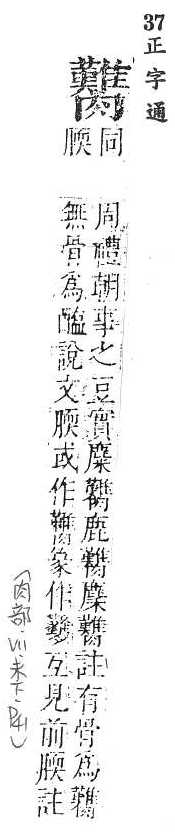 37正字通
臡
同
腝
周禮朝事之豆實麋臡鹿臡麋臡註有骨為臡
無骨為醢說文腝或作臡篆作互見前腝註
(肉部·VII·未下·P41)